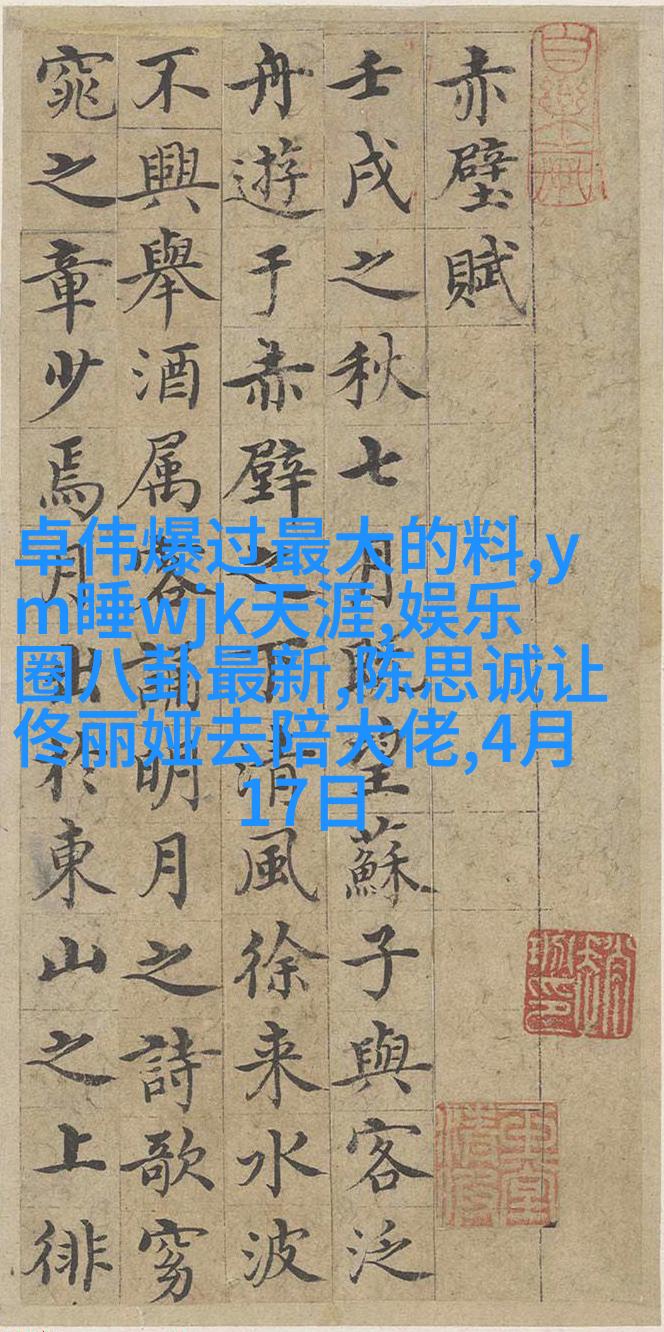 赤壁賦
壬戌之秋七月既望蘇子與客泛
舟遊于赤壁之下清風徐来水波
不興舉酒属客誦明月之詩歌窈
窕之章少焉月出於東山之上徘
卓伟爆过最大的料,y
m睡wjk天涯,娱乐
圈八卦最新,陈思诚让
佟丽娅去陪大佬,4月
17日